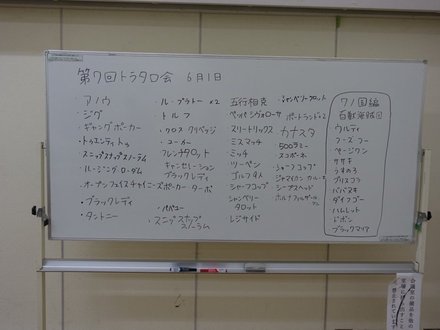 第7回トラタロ会 6月1日
・アノウ
・ジグ
・ギャングポーカー
・トゥエンティトゥ
・スニップスナップスノーラム
・ルージングローダム
・オープンフェイスチャイニーズポーカー ターボ
・ブラックレディ
・タントニー
・ル・プラトー ×2
・トルフ
・クロス クリベッジ
・ユーカー
フレンチタロット
キャンセレーション
ブラックレディ
・パペユー
・スニップスナップ
スノーラム
五行相克
ペッパー
スリートリックス
ミスマッチ
ミッチ
ツーペン
ゴルフタメ
シャーフコップ
シャンベリー
タロット
レジサイド
・シャンベリータロット
ポートランド×2
カナスタ
500ラミー
スコポーネ
・シャーフコップ
ジャマイカン
シープスヘッド
ワノ国編
百獣海賊団
ウルティ
フーズフー
ページワン
ササキ
うすのろ
ブリスコラ
ババヌキ
ダイフゴー
ハムレット
ドボン
ブラックマリア
会議室の備品を他の